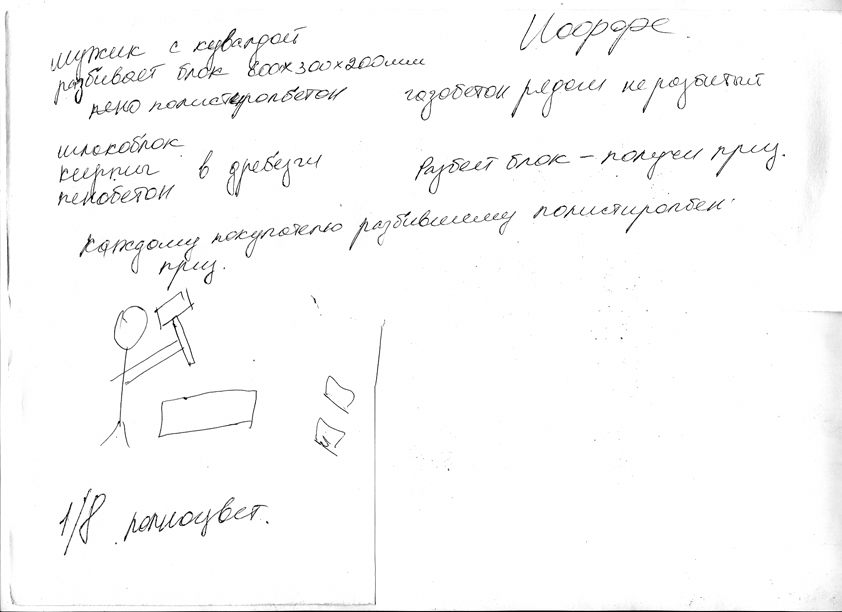 мужик с кувалдой
разбивает блок 800х300х200мм
пено полистеролбетон
газобетон рядом не разбитый
шлакоблок
кирпич в дребезги
пенобетон
Разбест блок – получи приз.
Каждому покупателю разбившему полистиролбен.
приз.
1/8 полноцвет.